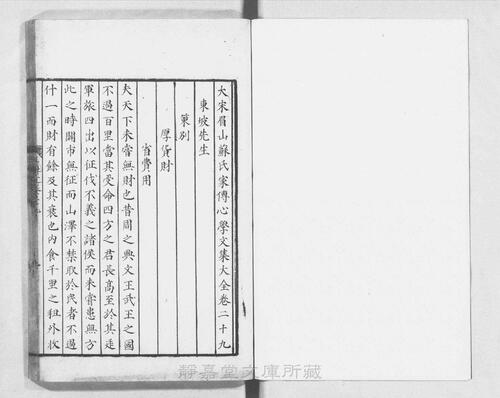 大宋眉山蘇氏家傳心學文集大全卷二十九
東坡先生
策別
厚貨財
省費用
夫天下未嘗無財也昔周之興文王武王之國
不過百里當其受命四方之君長髙至於其廷
軍旅四出以征伐不義之諸侯而未嘗患無方
此之時關市無征而山澤不禁取於民者不過
什一而財有餘及其衰也內食千里之租外收
靜嘉堂文庫所藏